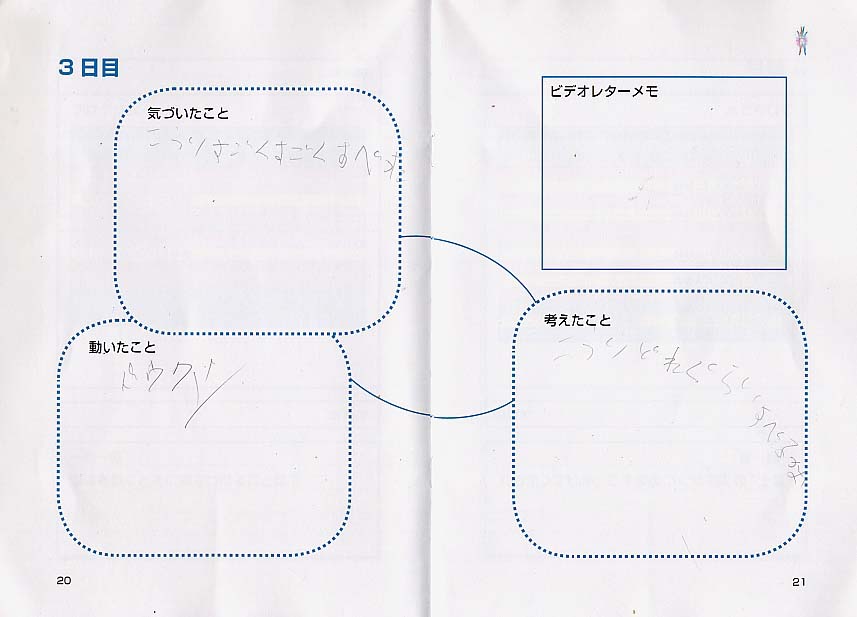 3日目
気づいたこと
こうりすごくすごくすべる
動いたこと
ドウクツ
20
ビデオレターメモ
考えたこと
こうりどれぐらい
すべるの
21